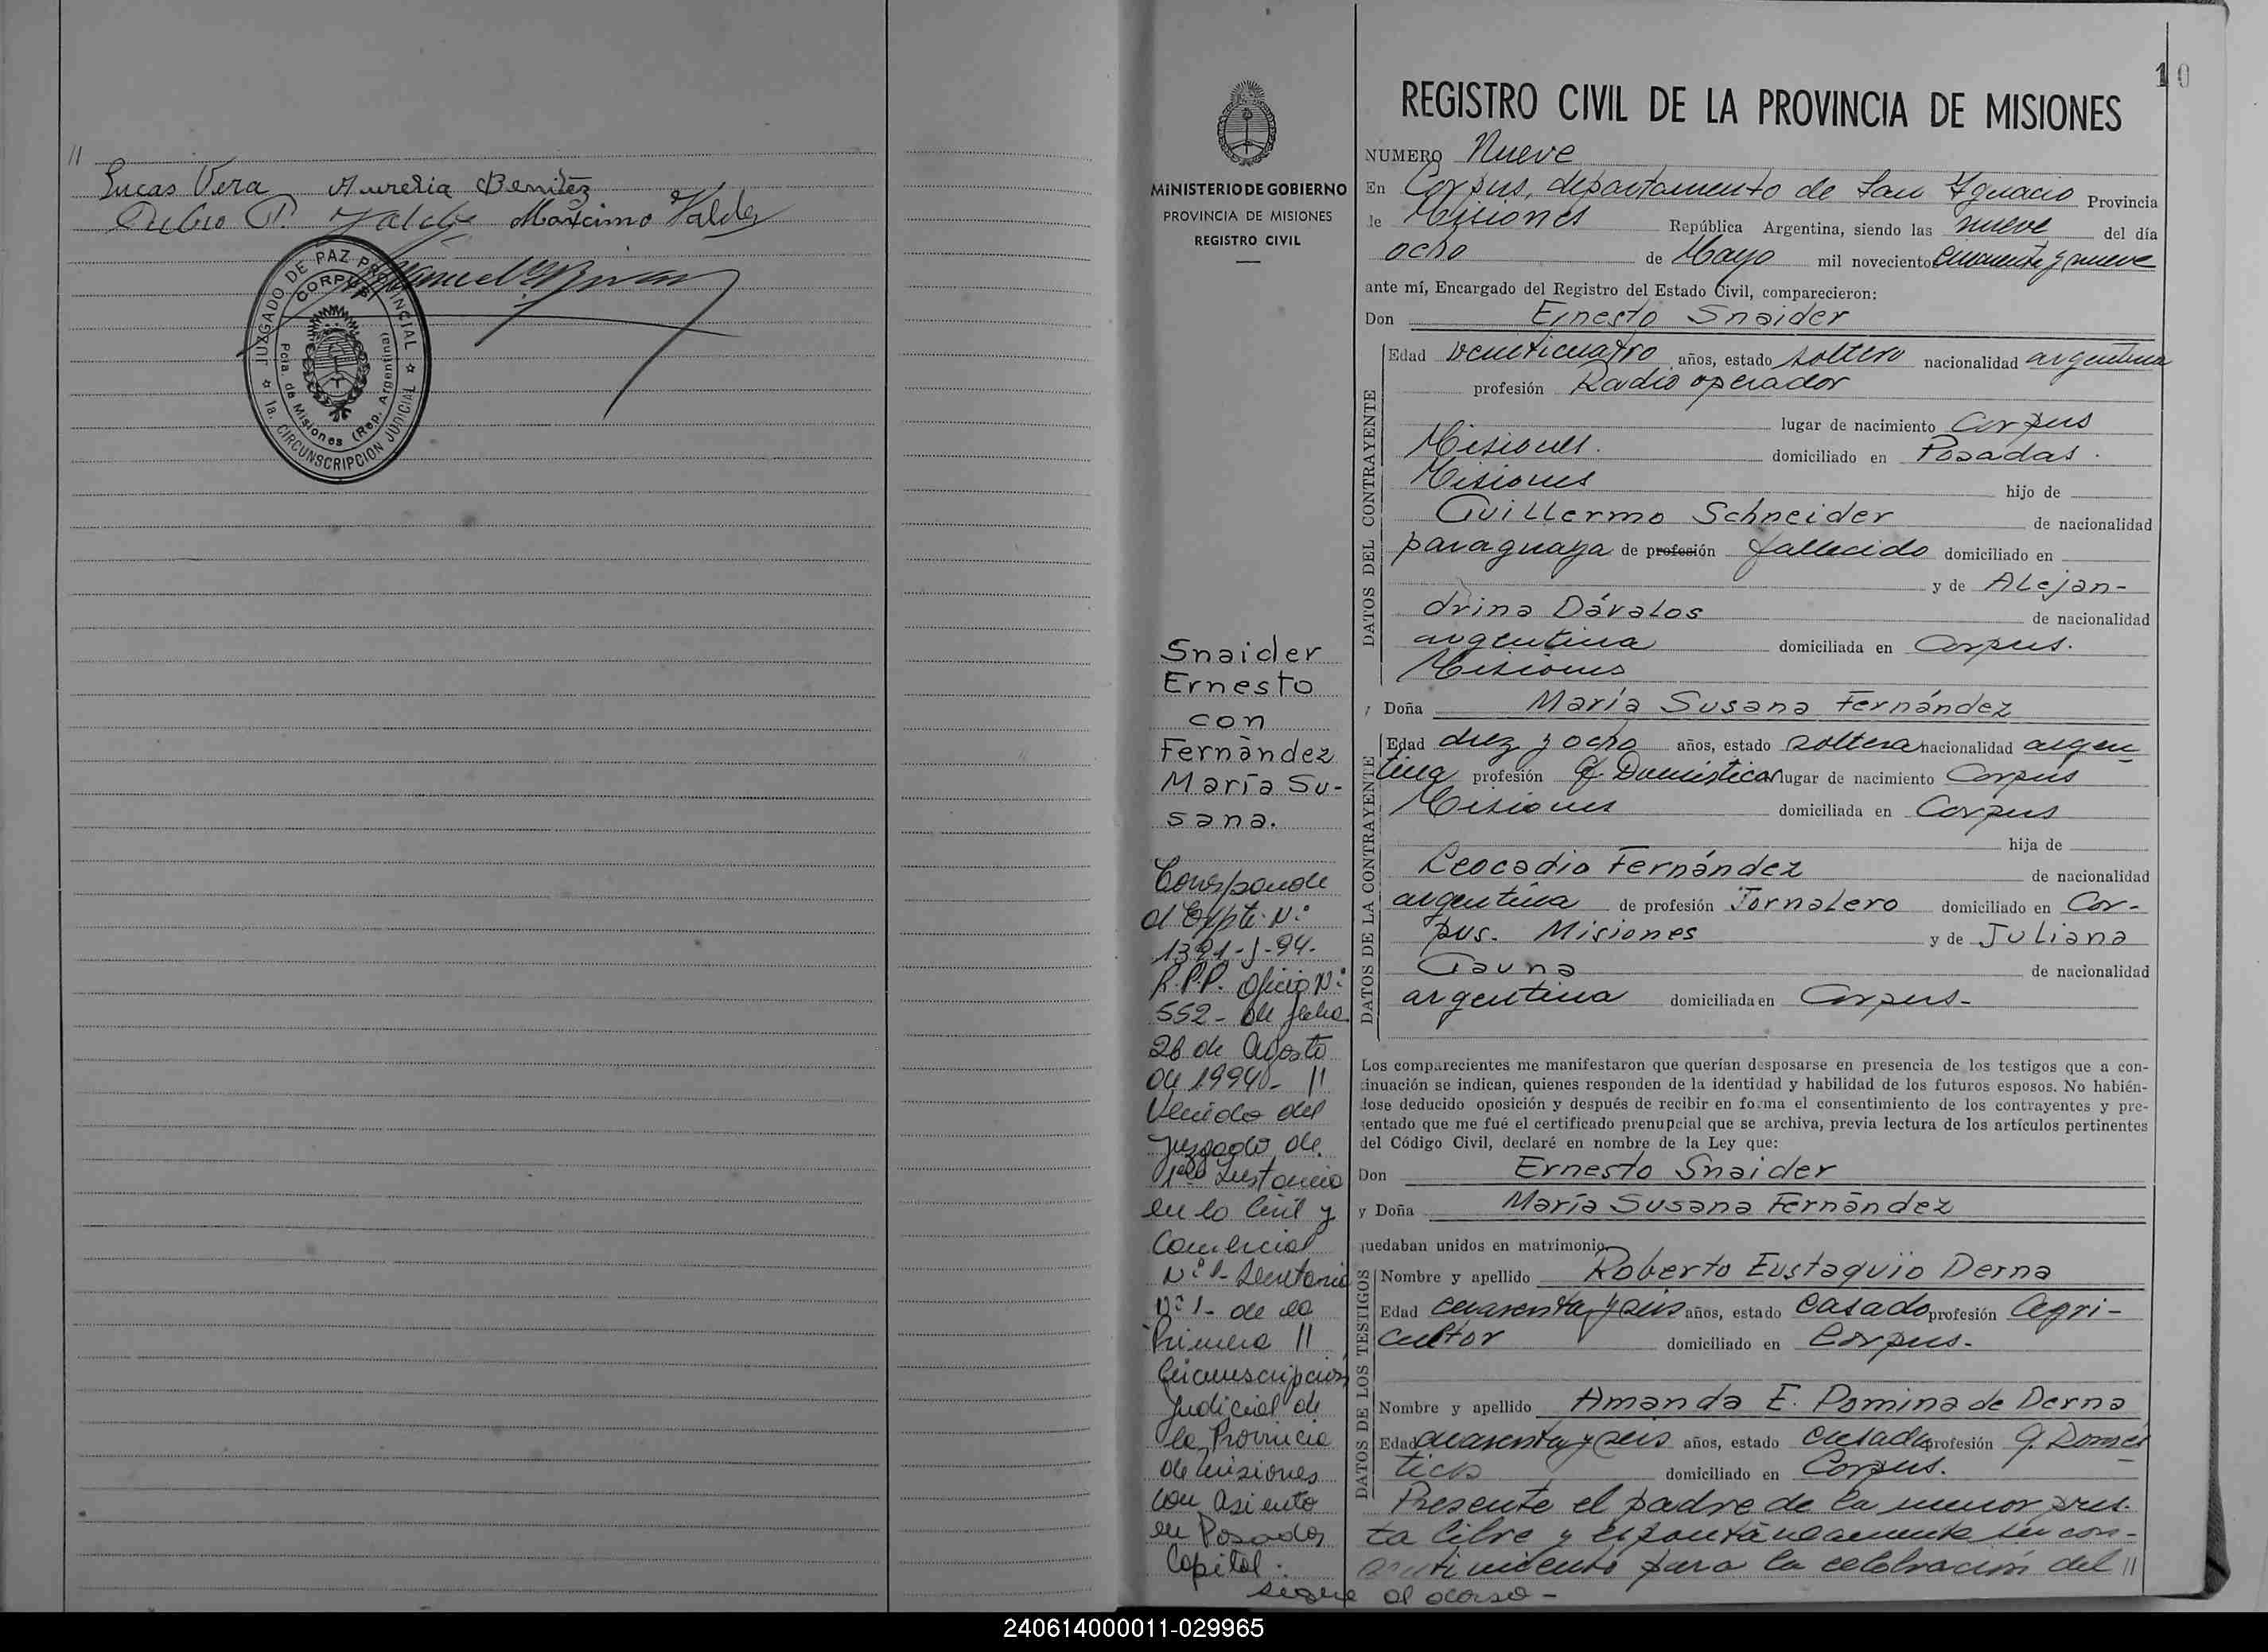 //
Lucas Vera Aurelia Benitez
Máximo Valdez
JUZGADO DE PAZ PROVINCIAL
CORPUS
Pcia. de Misiones (Rep. Argentina)
1a. CIRCUNSCRIPCION JUDICIAL
10
MINISTERIO DE GOBIERNO
PROVINCIA DE MISIONES
REGISTRO CIVIL
Snaider
Ernesto
con
Fernàndez
María Su-
sana.
Corresponde
al Expte. N°
1391-J-94.
R.P.P. Oficio N°
552- de fecha
26 de Agosto
de 1994- //
Venido del
Juzgado de
1ra Instancia
en lo Civil y
Comercial
N° 1- Secretaria
N° 1- de la
Primera //
Circunscripción
Judicial de
la Provincia
de Misiones
con asiento
en Posadas
Capital.
sigue al dorso -
REGISTRO CIVIL DE LA PROVINCIA DE MISIONES
NUMERO Nueve
En Corpus, departamento de San Ignacio Provincia
de Misiones República Argentina, siendo las nueve del día
ocho de Mayo mil novecientos cincuenta y nueve
ante mí, Encargado del Registro del Estado Civil, comparecieron:
Don Ernesto Snaider
DATOS DEL CONTRAYENTE
Edad veinticuatro años, estado soltero nacionalidad argentina
profesión Radio operador
lugar de nacimiento Corpus
Misiones. domiciliado en Posadas.
Misiones hijo de
Guillermo Schneider de nacionalidad
paraguaya de profesión fallecido domiciliado en
y de Alejan-
drina Dávalos de nacionalidad
argentina domiciliada en Corpus.
Misiones
y Doña María Susana Fernández
DATOS DE LA CONTRAYENTE
Edad diez y ocho años, estado soltera nacionalidad argen-
tina profesión Q. Domésticos lugar de nacimiento Corpus
Misiones domiciliada en Corpus
hija de
Leocadio Fernández de nacionalidad
argentina de profesión Jornalero domiciliado en Cor-
pus. Misiones y de Juliana
Gauna de nacionalidad
argentina domiciliada en Corpus-
Los comparecientes me manifestaron que querían desposarse en presencia de los testigos que a con-
tinuación se indican, quienes responden de la identidad y habilidad de los futuros esposos. No habién-
dose deducido oposición y después de recibir en forma el consentimiento de los contrayentes y pre-
sentado que me fué el certificado prenupcial que se archiva, previa lectura de los artículos pertinentes
del Código Civil, declaré en nombre de la Ley que:
Don Ernesto Snaider
y Doña María Susana Fernández
quedaban unidos en matrimonio.
DATOS DE LOS TESTIGOS
Nombre y apellido Roberto Eustaquio Derna
Edad cuarenta y seis años, estado casado profesión Agri-
cultor domiciliado en Corpus.-
Nombre y apellido Amanda E. Domina de Derna
Edad cuarenta y seis años, estado casada profesión Q. Domés
ticos domiciliado en Corpus.
Presente el padre de la menor pres-
ta libre y espontáneamente su con-
sentimiento para la celebración del //
240614000011-029965